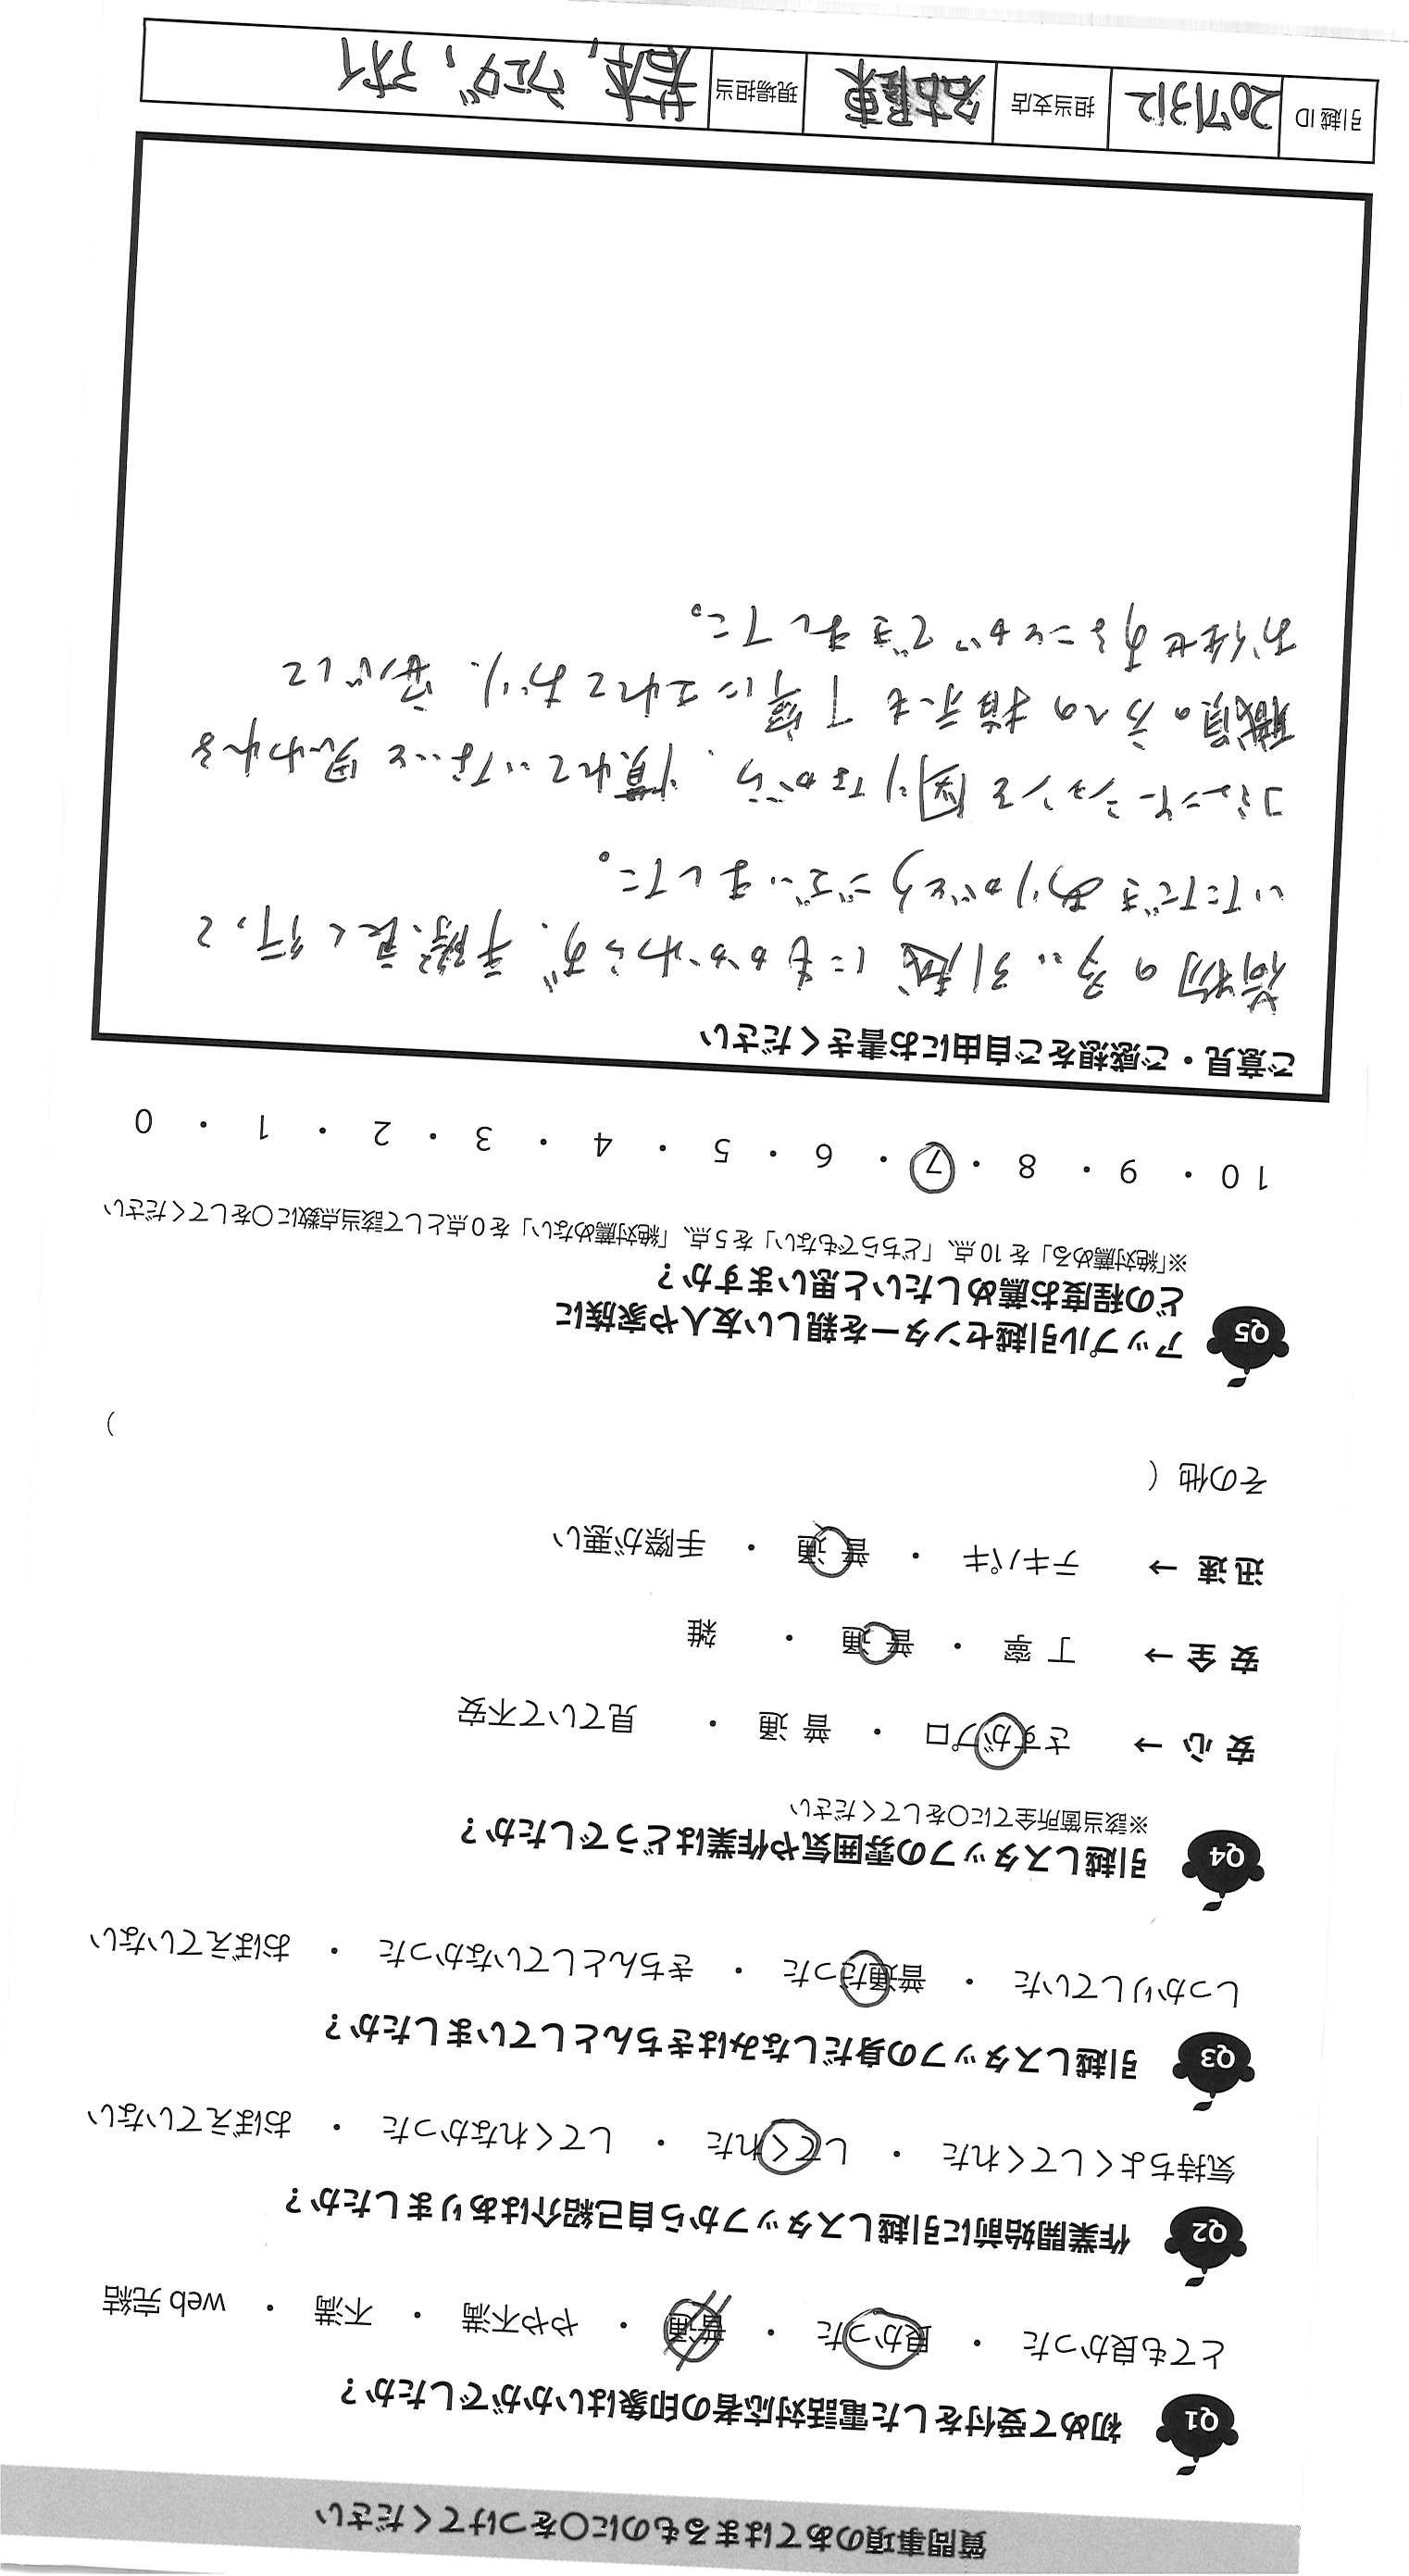 質問事項のあてはまるものに○をつけてください
Q1 初めて受付をした電話対応者の印象はいかがでしたか？
とても良かった ・ 良かった ・ 普通 ・ やや不満 ・ 不満 ・ web 完結
Q2 作業開始前に引越しスタッフから自己紹介はありましたか？
気持ちよくしてくれた ・ してくれた ・ してくれなかなった ・ おぼえていない
Q3 引越しスタッフの身だしなみはきちんとしていましたか？
しっかりしていた ・ 普通だった ・ きちんとしていなかった ・ おぼえていない
Q4 引越しスタッフの雰囲気や作業はどうでしたか？
※該当箇所全てに○をしてください
安心 → さすがプロ ・ 普通 ・ 見ていて不安
安全 → 丁寧 ・ 普通 ・ 雑
迅速 → テキパキ ・ 普通 ・ 手際が悪い
その他（ ）
Q5 アップル引越センターを親しい友人や家族に
どの程度お薦めしたいと思いますか？
※「絶対薦める」を 10 点、「どちらでもない」を 5 点、「絶対薦めない」を 0 点として該当点数に○をしてください
10 ・ 9 ・ 8 ・ 7 ・ 6 ・ 5 ・ 4 ・ 3 ・ 2 ・ 1 ・ 0
ご意見・ご感想をご自由にお書きください
荷物の多い引越にもかかわらず、手際良く行って
いただきありがとうございました。
コミュニケーションを図りながら、慣れていないと思われる
職員の方への指示も丁寧にされており、安心して
お任せすることができました。
引越 ID 2071312 担当支店 名古屋東 現場担当 岩本, ウエダ, アオイ